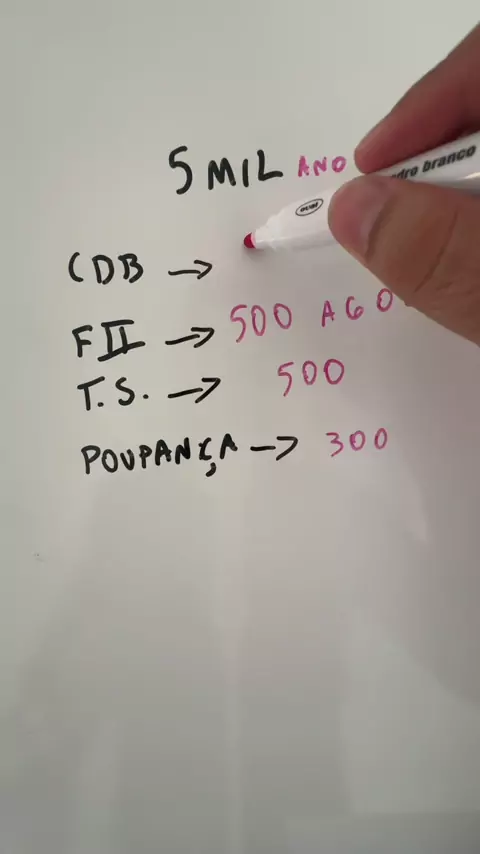 5 MIL ANO
CDB →
FII → 500 AGO
T.S. → 500
POUPANÇA → 300
dro branco